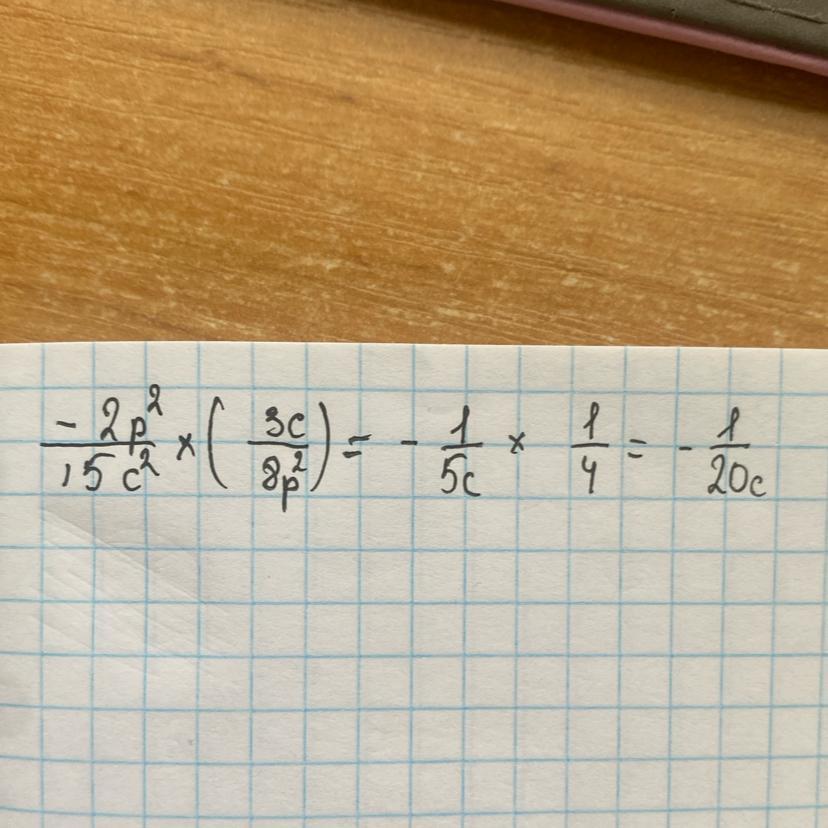 -2p²/15c² × (3c/8p²) = - 1/5c × 1/4 = - 1/20c